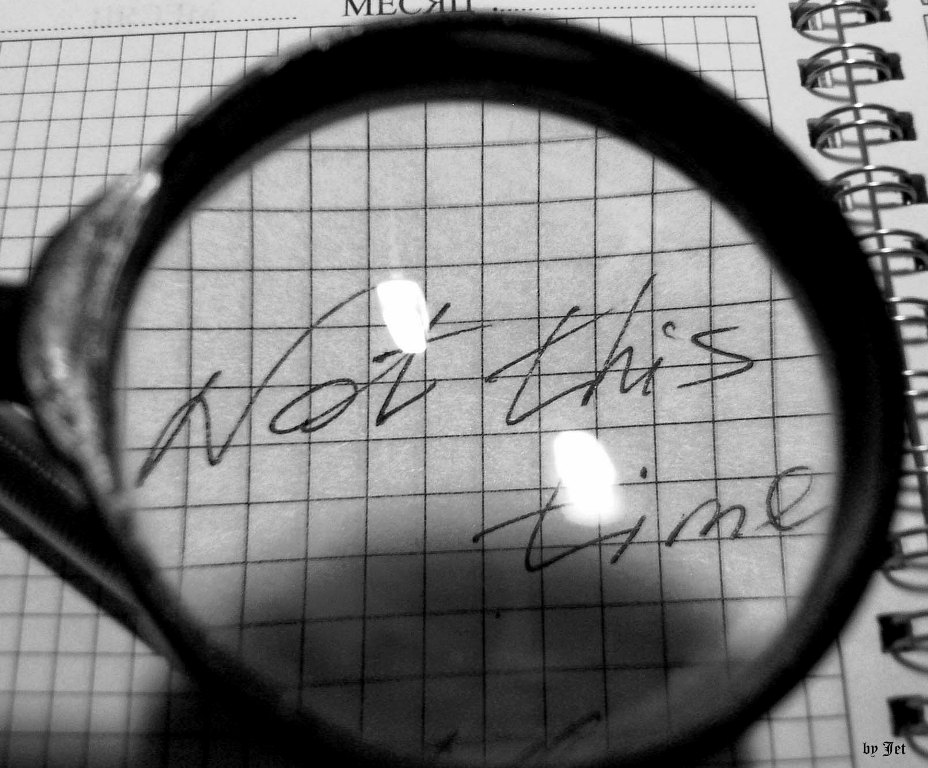 МЕСЯЦ
Not this
time
by Jet